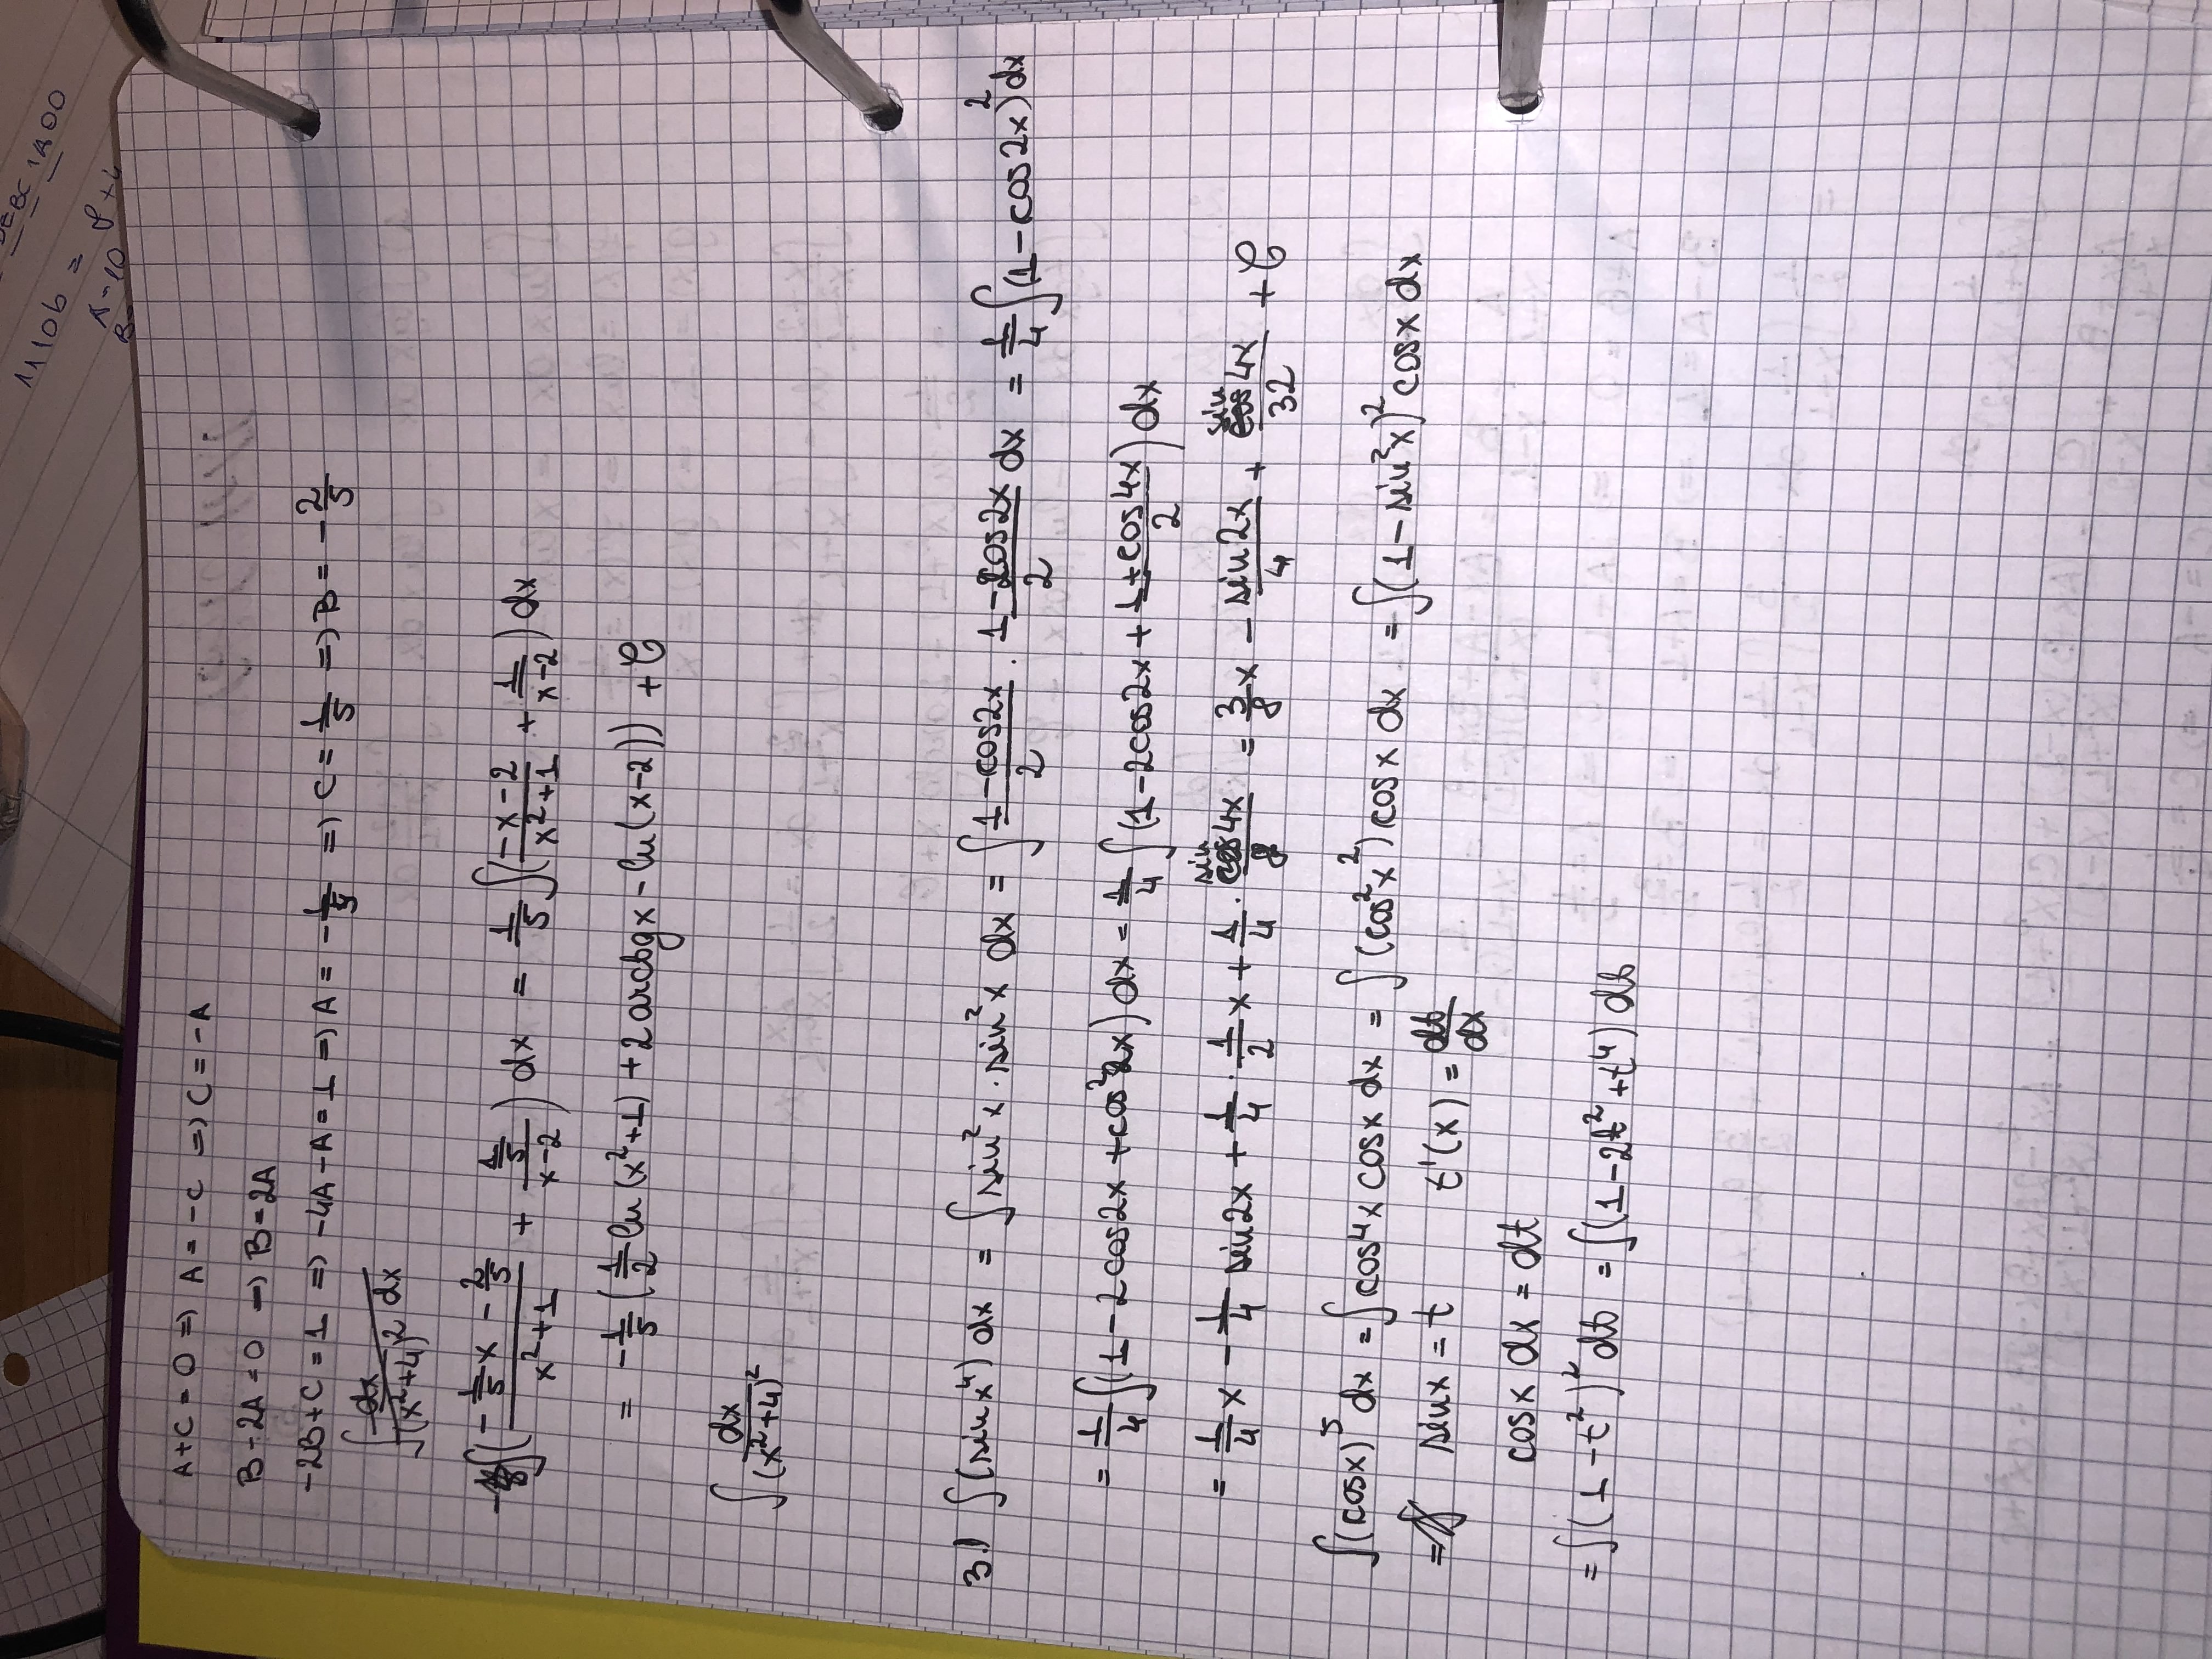 DEBC 1A00
1110b = 8+4
A-10
B-
A+C = 0 => A = -C => C = -A
B-2A = 0 => B = 2A
-2B+C = 1 => -4A-A = 1 => A = -1/5 => C = 1/5 => B = -2/5
∫ dx/(x²+4)² dx
-∫( (-1/5 x - 2/5)/(x²+1) + (1/5)/(x-2) ) dx = 1/5 ∫( (-x-2)/(x²+1) + 1/(x-2) ) dx
= -1/5 (1/2 ln(x²+1) + 2 arctgx - ln(x-2)) + C
∫ dx/(x²+4)²
3.) ∫(sinx⁴) dx = ∫sin²x · sin²x dx = ∫ (1-cos2x)/2 · (1-cos2x)/2 dx = 1/4 ∫(1-cos2x)² dx
= 1/4 ∫(1-2cos2x+cos²2x) dx = 1/4 ∫(1-2cos2x + (1+cos4x)/2) dx
= 1/4 x - 1/4 sin2x + 1/4 · 1/2 x + 1/4 · sin4x/8 = 3/8 x - sin2x/4 + sin4x/32 + C
∫(cosx)⁵ dx = ∫cos⁴x cosx dx = ∫(cos²x²) cosx dx = ∫(1-sin²x)² cosx dx
= sinx = t t'(x) = dt/dx
cosx dx = dt
= ∫(1-t²)² dt = ∫(1-2t²+t⁴) dt